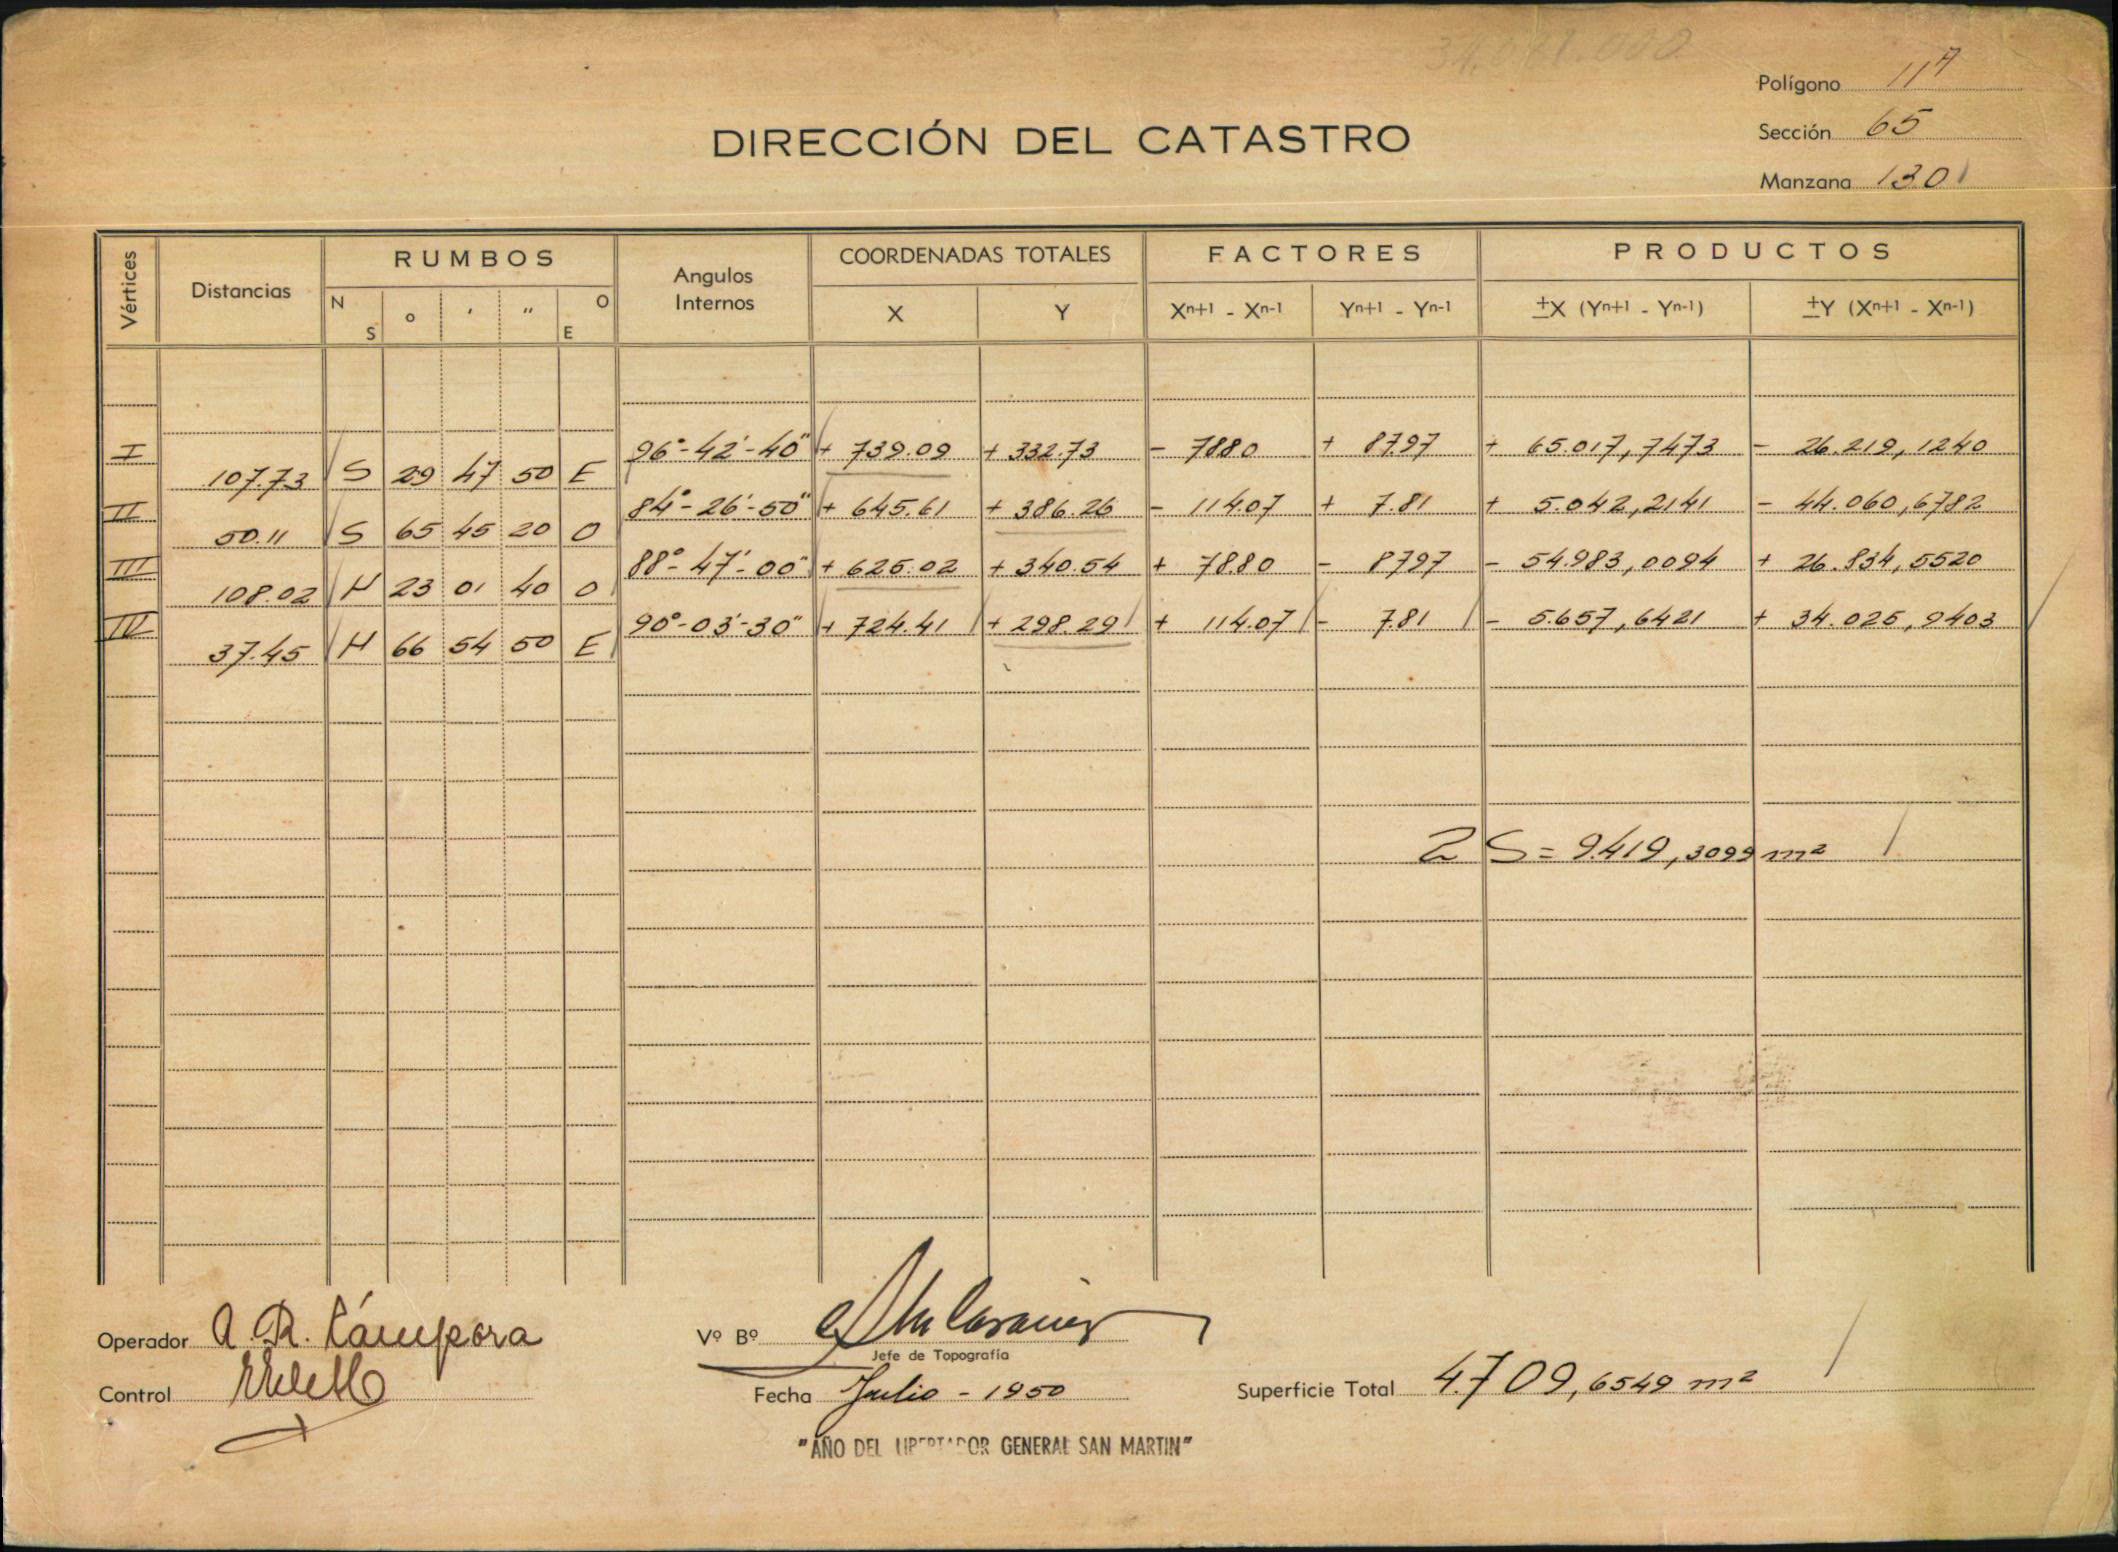 34.071.000
Polígono 11A
DIRECCIÓN DEL CATASTRO
Sección 65
Manzana 130
Vértices Distancias RUMBOS Angulos Internos COORDENADAS TOTALES FACTORES PRODUCTOS
N S ° ' " O E X Y Xn+1 - Xn-1 Yn+1 - Yn-1 ±X (Yn+1 - Yn-1) ±Y (Xn+1 - Xn-1)
I 96°-42'-40" + 739.09 + 332.73 - 78.80 + 87.97 + 65.017,7473 - 26.219,1240
107.73 S 29 47 50 E
II 84°-26'-50" + 645.61 + 386.26 - 114.07 + 7.81 + 5.042,2141 - 44.060,6782
50.11 S 65 45 20 O
III 88°-47'-00" + 625.02 + 340.54 + 78.80 - 87.97 - 54.983,0094 + 26.834,5520
108.02 N 23 01 40 O
IV 90°-03'-30" + 724.41 + 298.29 + 114.07 - 7.81 - 5.657,6421 + 34.025,9403
37.45 N 66 54 50 E
2 S = 9.419,3099 m²
Operador A. R. Cámpora
Vº Bº
Jefe de Topografía
Control
Fecha Julio - 1950
Superficie Total 4.709,6549 m²
"AÑO DEL LIBERTADOR GENERAL SAN MARTIN"